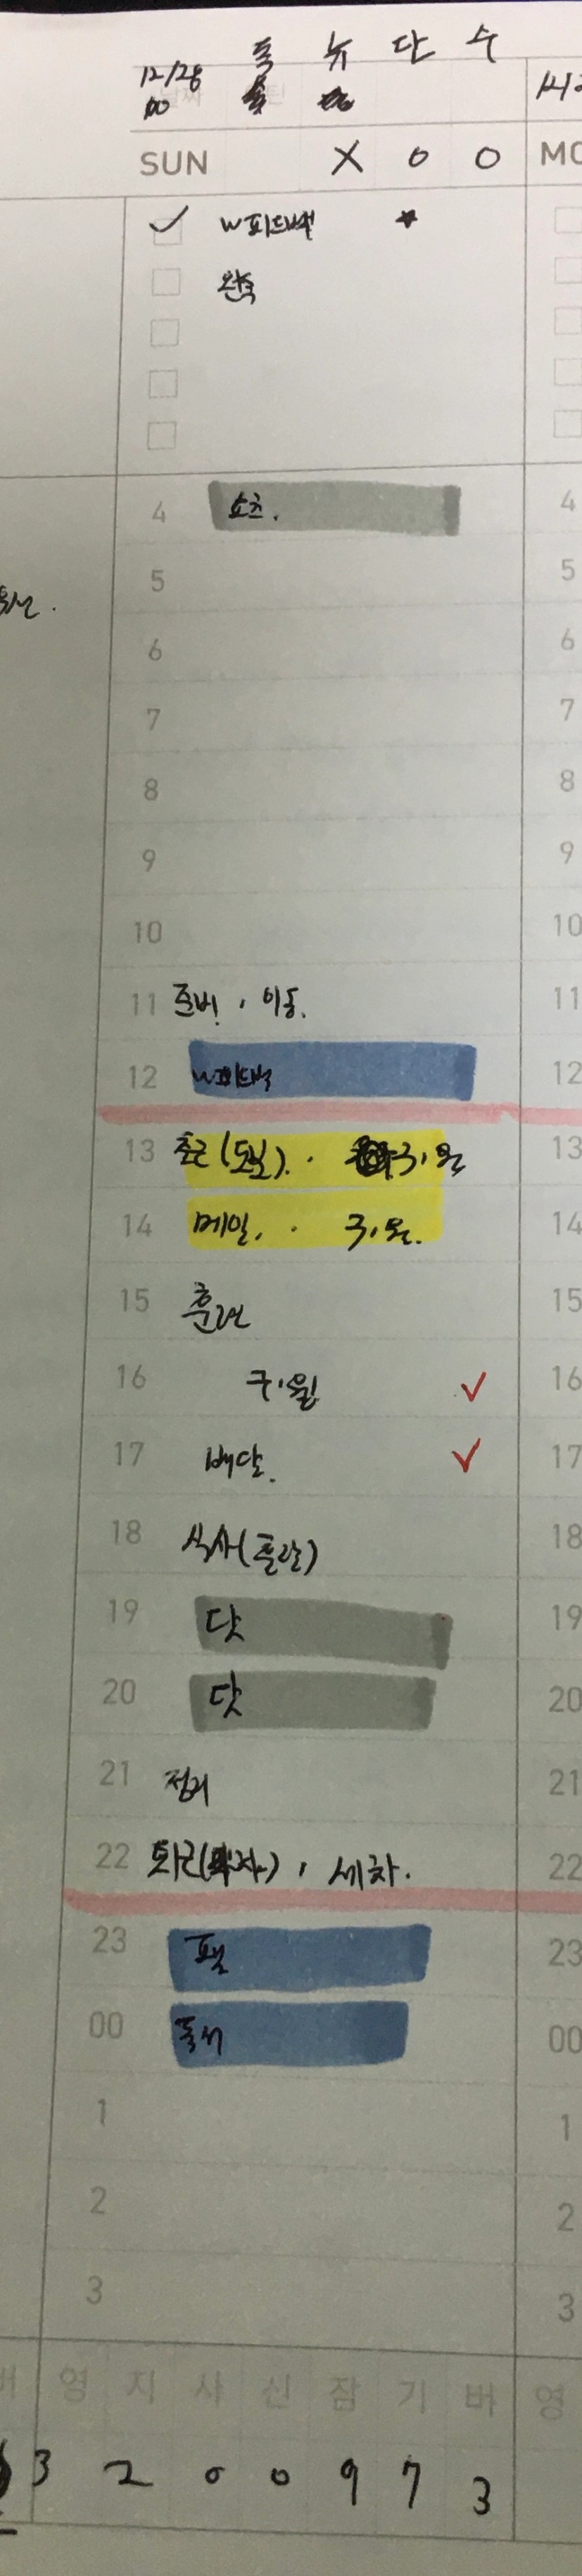 12/28 독 뉴 단 수
SUN X O O MO
✓ W피드백
완독
4 쇼츠. 4
5 5
6 6
7 7
8 8
9 9
10 10
11 준비, 이동. 11
12 W피드백 12
13 출근(도보). · 구,원 13
14 메일. · 구,원. 14
15 훈련 15
16 구,원 ✓ 16
17 배달. ✓ 17
18 식사(플랜) 18
19 닷 19
20 닷 20
21 정리 21
22 퇴근( ), 세차. 22
23 23
00 독서 00
1 1
2 2
3 3
영 지 사 신 잠 기 버 영
3 2 0 0 9 7 3